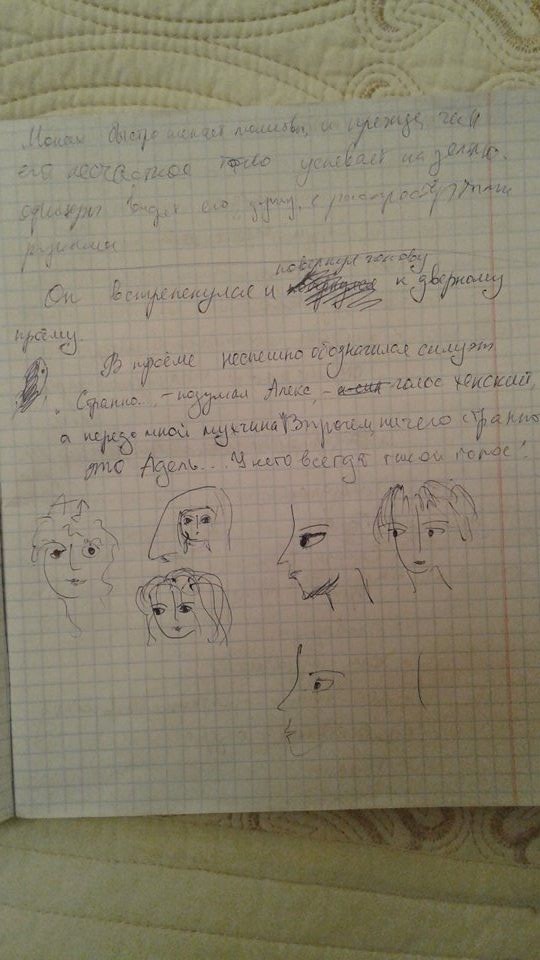 Монах быстро шепчет молитвы, и прежде, чем
его несчастное тело успевает на землю.
его душу, с
Он встрепенулся и повернул голову к дверному
проёму.
В проёме неспешно обозначился силуэт
"Странно..., - подумал Алекс, - голос женский,
а передо мной мужчина. Впрочем, ничего странно
это Адель... У него всегда такой голос".